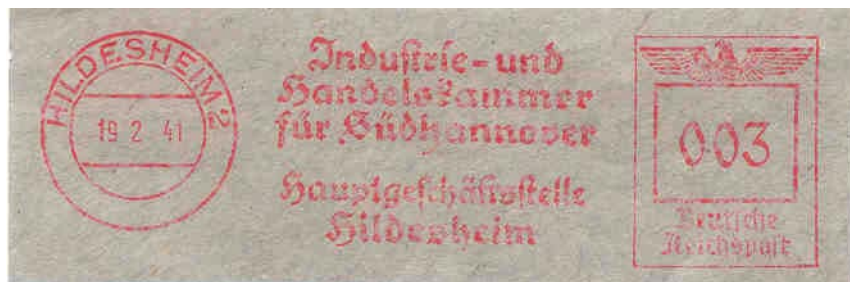 HILDESHEIM 2
19 2 41
Industrie- und
Handelskammer
für Südhannover
Hauptgeschäftsstelle
Hildesheim
003
Deutsche
Reichspost